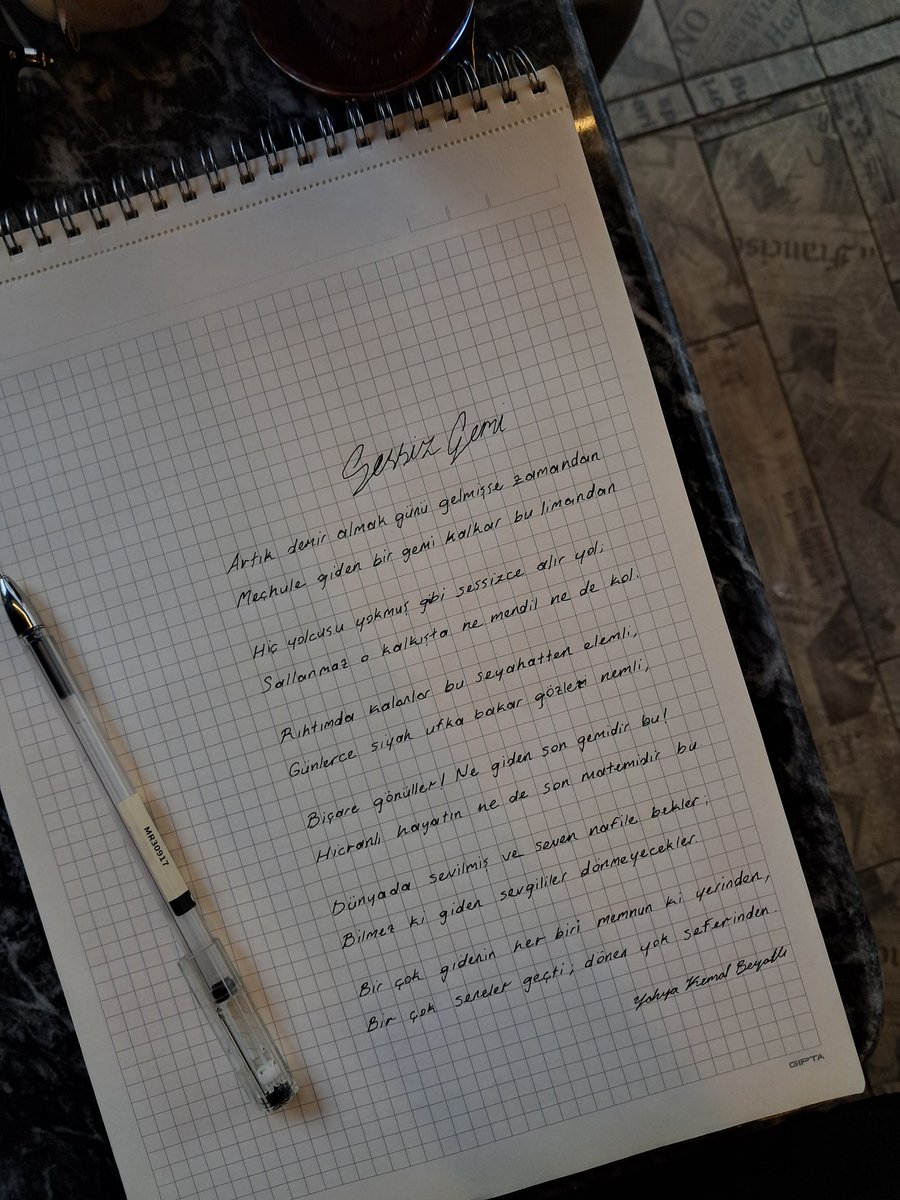 Sessiz Gemi
Artık demir almak günü gelmişse zamandan
Meçhule giden bir gemi kalkar bu limandan
Hiç yolcusu yokmuş gibi sessizce alır yol;
Sallanmaz o kalkışta ne mendil ne de kol.
Rıhtımda kalanlar bu seyahatten elemli,
Günlerce siyah ufka bakar gözleri nemli,
Biçare gönüller! Ne giden son gemidir bu!
Hicranlı hayatın ne de son matemidir bu.
Dünyada sevilmiş ve seven nafile bekler;
Bilmez ki giden sevgililer dönmeyecekler.
Bir çok gidenin her biri memnun ki yerinden,
Bir çok seneler geçti; dönen yok seferinden.
Yahya Kemal Beyatlı
GIPTA
MR30917
NO
Francisc